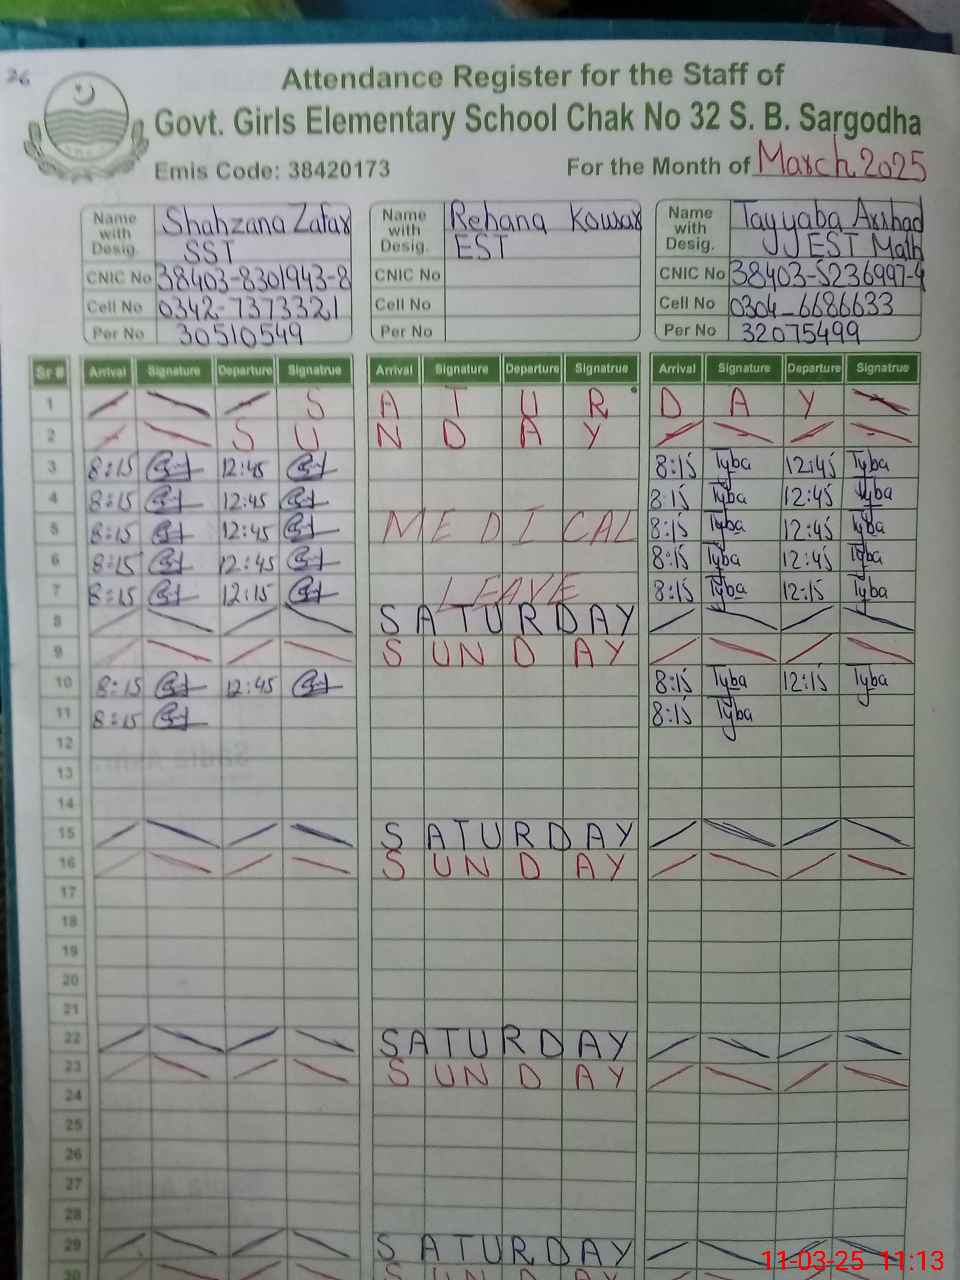 26
Attendance Register for the Staff of
Govt. Girls Elementary School Chak No 32 S. B. Sargodha
Emis Code: 38420173 For the Month of March 2025
Name with Desig. Shahzana Zafar SST
CNIC No 38403-8301943-8
Cell No 0342-7373321
Per No 30510549
Name with Desig. Rehana Kousar EST
CNIC No
Cell No
Per No
Name with Desig. Tayyaba Arshad EST Math
CNIC No 38403-5236997-4
Cell No 0304-6686633
Per No 32075499
Sr # Arrival Signature Departure Signatrue Arrival Signature Departure Signatrue Arrival Signature Departure Signatrue
1 S A T U R D A Y
2 S U N D A Y
3 8:15 12:45 8:15 Tyba 12:45 Tyba
4 8:15 12:45 8:15 Tyba 12:45 Tyba
5 8:15 12:45 MEDICAL 8:15 Tyba 12:45 Tyba
6 8:15 12:45 8:15 Tyba 12:45 Tyba
7 8:15 12:15 LEAVE 8:15 Tyba 12:15 Tyba
8 SATURDAY
9 SUNDAY
10 8:15 12:45 8:15 Tyba 12:15 Tyba
11 8:15 8:15 Tyba
12
13
14
15 SATURDAY
16 SUNDAY
17
18
19
20
21
22 SATURDAY
23 SUNDAY
24
25
26
27
28
29 SATURDAY
30 SUNDAY
11-03-25 11:13